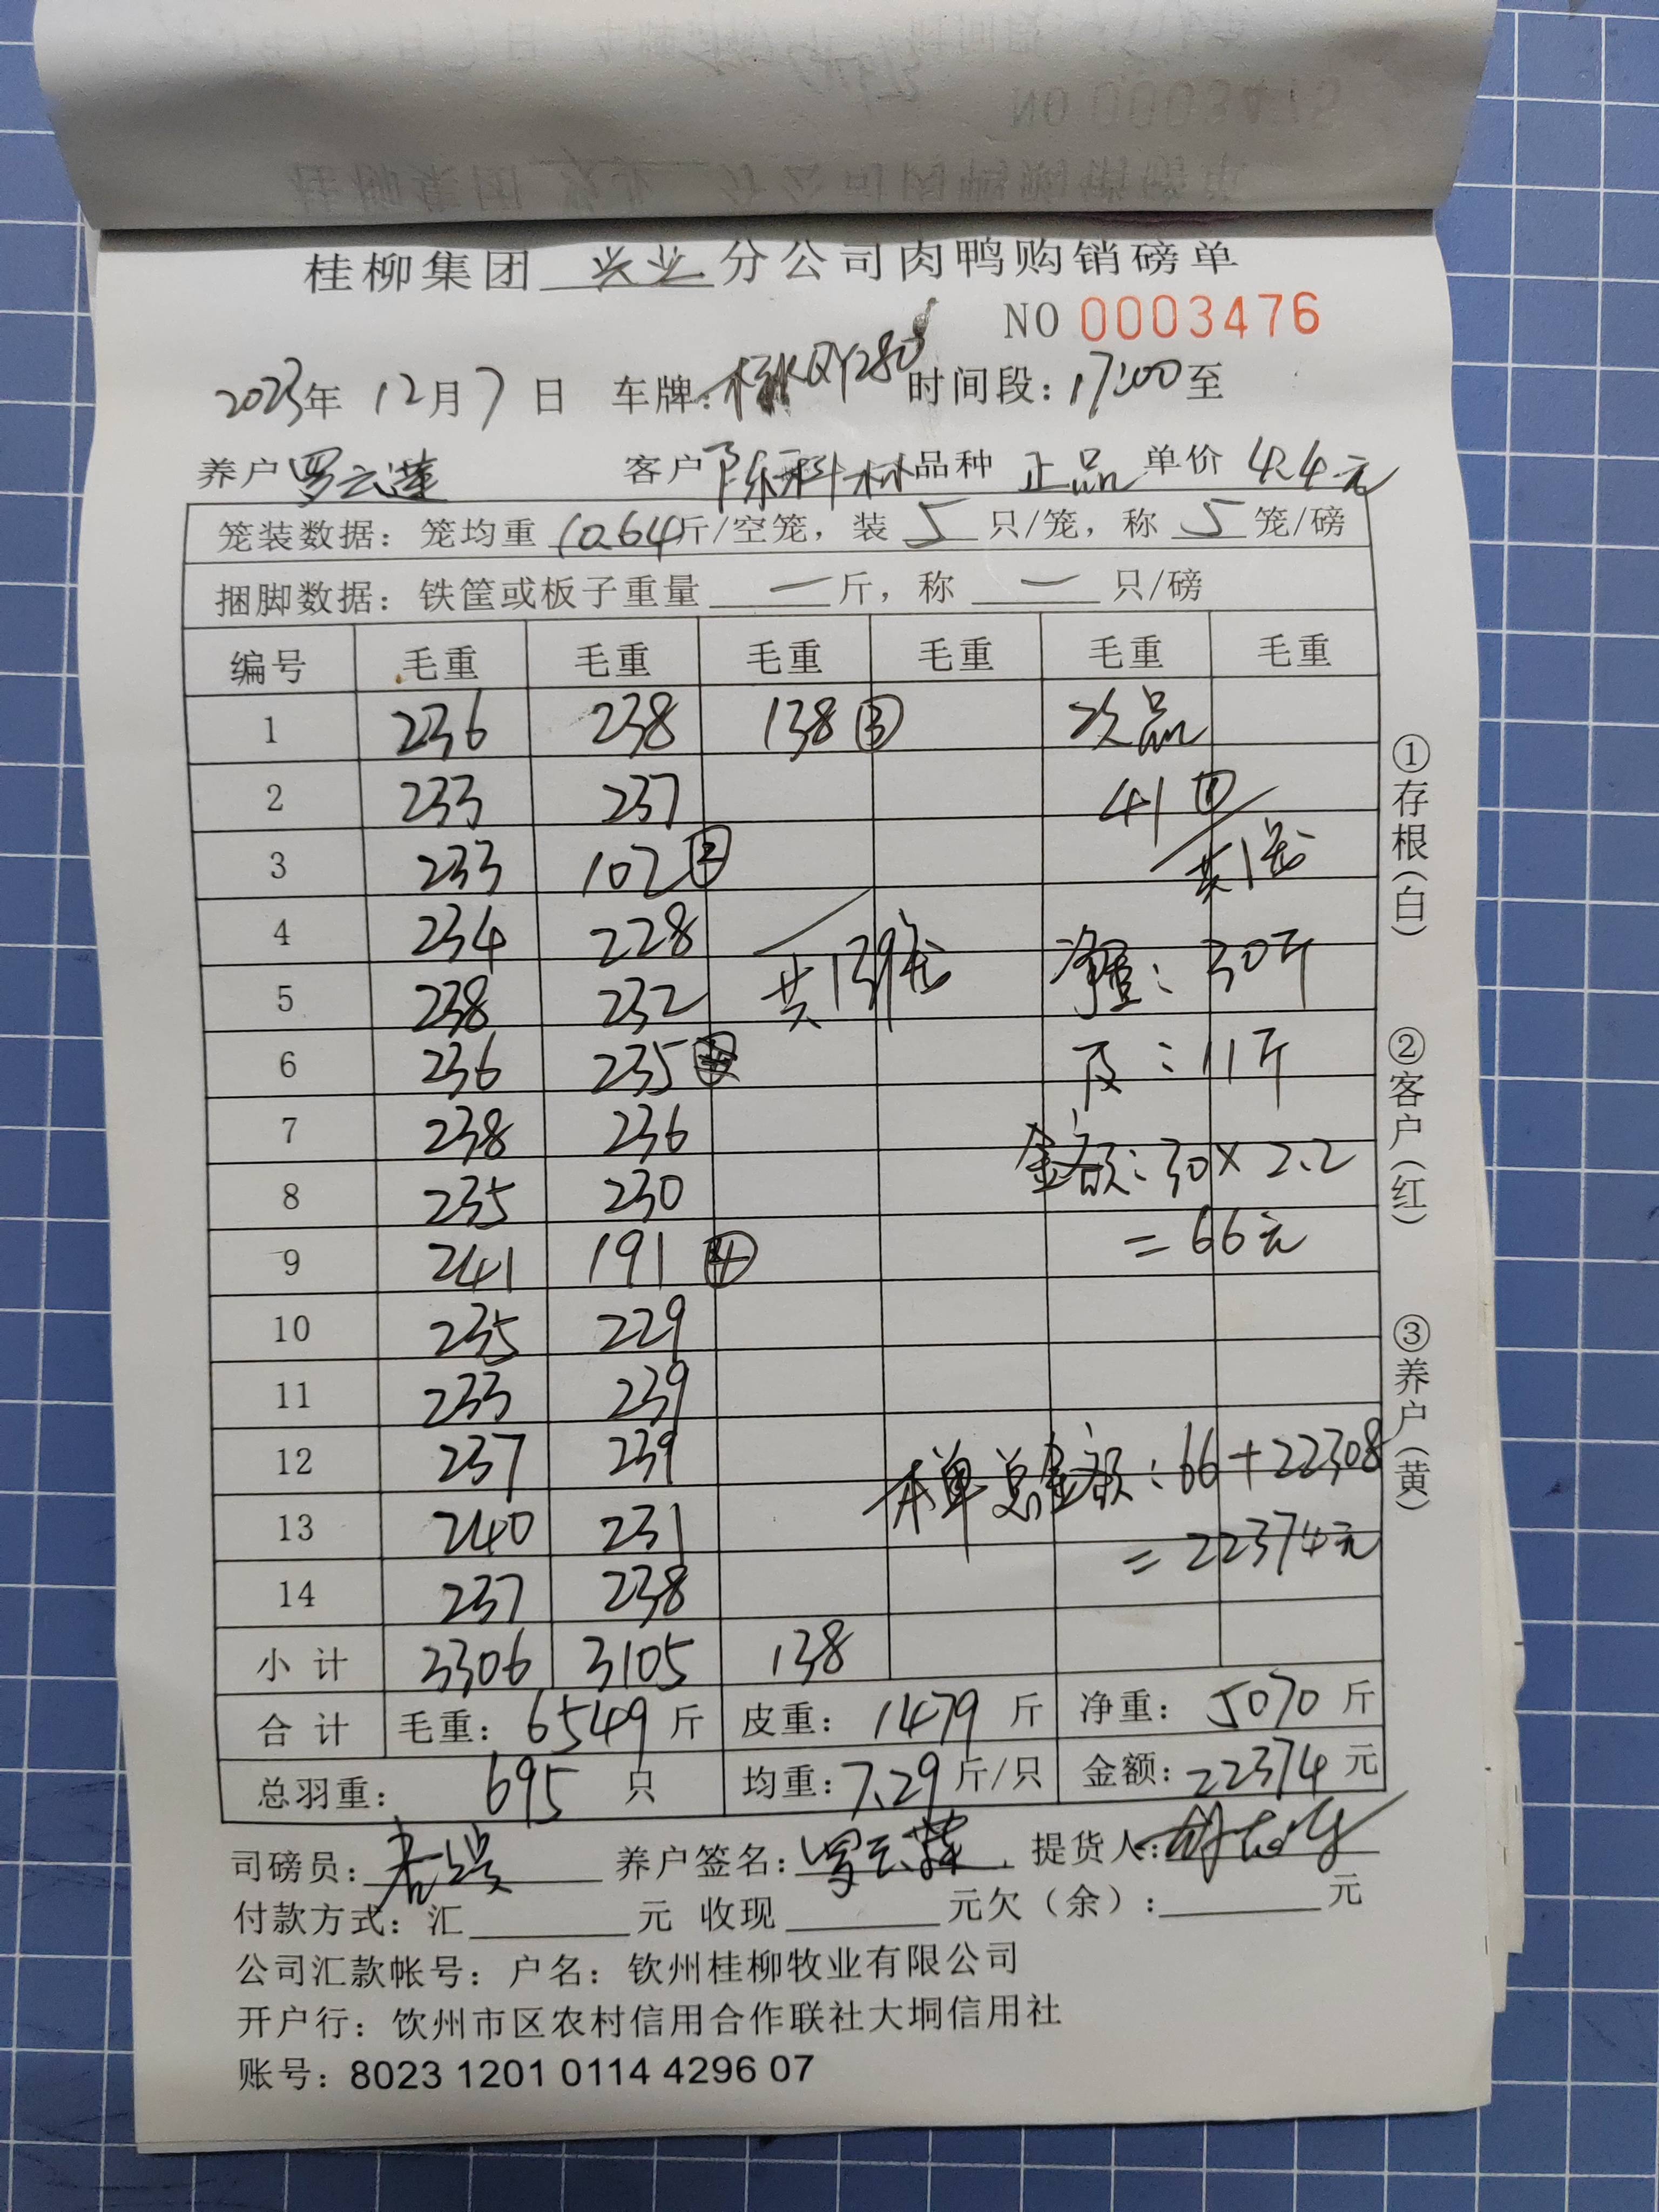 桂柳集团 兴业 分公司肉鸭购销磅单
NO 0003476
2023年 12月7日 车牌: 时间段: 17:00至
养户 罗云莲 客户 陈科林 品种 正品 单价 4.4元
笼装数据: 笼均重 10.64斤/空笼, 装 5 只/笼, 称 5 笼/磅
捆脚数据: 铁筐或板子重量 一 斤, 称 一 只/磅
编号 毛重 毛重 毛重 毛重 毛重 毛重
1 236 238 138③ 次品
2 233 237 41①
3 233 102② 共1笼
4 234 228
5 238 232 共139笼 净重: 30斤
6 236 235 皮: 11斤
7 238 236
8 235 230 金额: 30×2.2
9 241 191④ =66元
10 235 229
11 233 239
12 237 239 本单总金额: 66+22308
13 240 231 =22374元
14 237 238
小计 3306 3105 138
合计 毛重: 6549 斤 皮重: 1479 斤 净重: 5070 斤
总羽重: 695 只 均重: 7.29 斤/只 金额: 22374 元
司磅员: 养户签名: 罗云莲 提货人:
付款方式: 汇 元 收现 元欠(余): 元
公司汇款帐号: 户名: 钦州桂柳牧业有限公司
开户行: 饮州市区农村信用合作联社大垌信用社
账号: 8023 1201 0114 4296 07
①存根(白) ②客户(红) ③养户(黄)